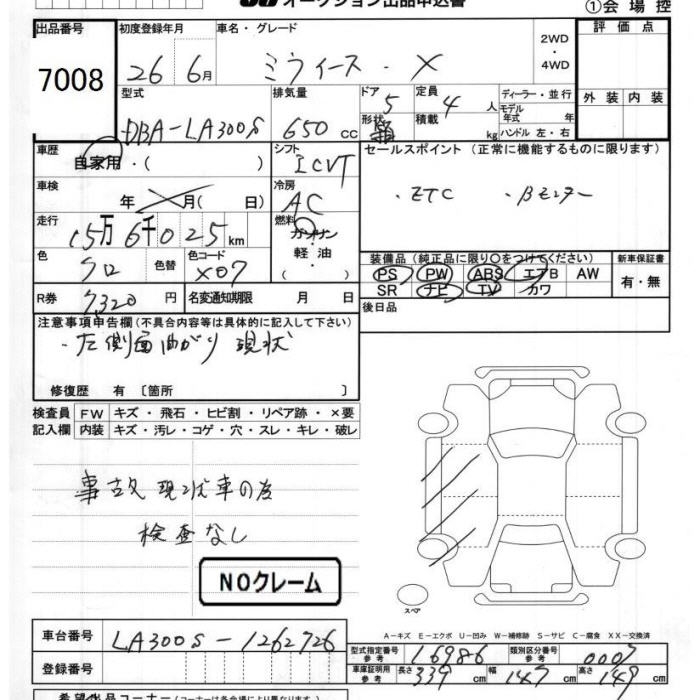 オークション出品申込書
①会場控
出品番号 初度登録年月 車名・グレード 2WD・4WD 評価点
7008 26年 6月 ミライース・X
型式 排気量 ドア 5 定員 4人 ディーラー・並行 外装 内装
DBA-LA300S 650 cc 形状 積載 kg モデル年式 年
ハンドル 左・右
車歴 自家用・( ) シフト ICVT セールスポイント (正常に機能するものに限ります)
車検 年 月( 日) 冷房 AC ・ETC ・Bモニター
走行 15万6千025km 燃料 ガソリン 軽油 ( )
色 クロ 色替 色コード X07 装備品(純正品に限り○をつけてください) 新車保証書
PS PW ABS エアB AW 有・無
R券 7320円 名変通知期限 月 日 SR ナビ TV カワ
注意事項申告欄(不具合内容等は具体的に記入して下さい) 後日品
・左側面曲がり 現状
修復歴 有 〔箇所 〕
検査員 FW キズ・飛石・ヒビ割・リペア跡・×要
記入欄 内装 キズ・汚レ・コゲ・穴・スレ・キレ・破レ
事故 現状車の為
検査なし
NOクレーム
スペア
A-キズ E-エクボ U-凹み W-補修跡 S-サビ C-腐食 XX-交換済
車台番号 LA300S-1262726 型式指定番号 参考 16986 類別区分番号 参考 0007
登録番号 車庫証明用 参考 長さ 339cm 幅 147cm 高さ 149cm
希望出品コーナー